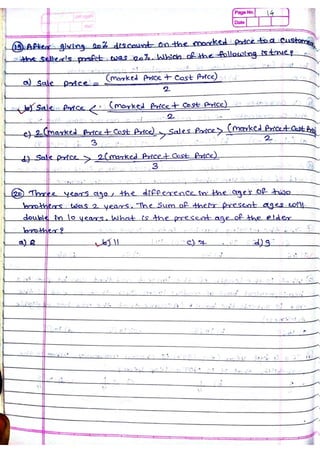 Page No. 14
Date
(19) After giving 20% discount on the marked price to a customer
the seller's profit was 20%. Which of the following is true?
a) Sale price = (marked Price + Cost Price)
2
b) Sale Price < (marked Price + Cost Price)
2
c) 2(marked Price + Cost Price) > Sales Price > (marked Price + Cost Price)
3 2
d) Sale price > 2(marked Price + Cost Price)
3
(20) Three years ago, the difference in the ages of two
brothers was 2 years. The sum of their present ages will
double in 10 years. What is the present age of the elder
brother?
b) 11 c) 7 d) 9